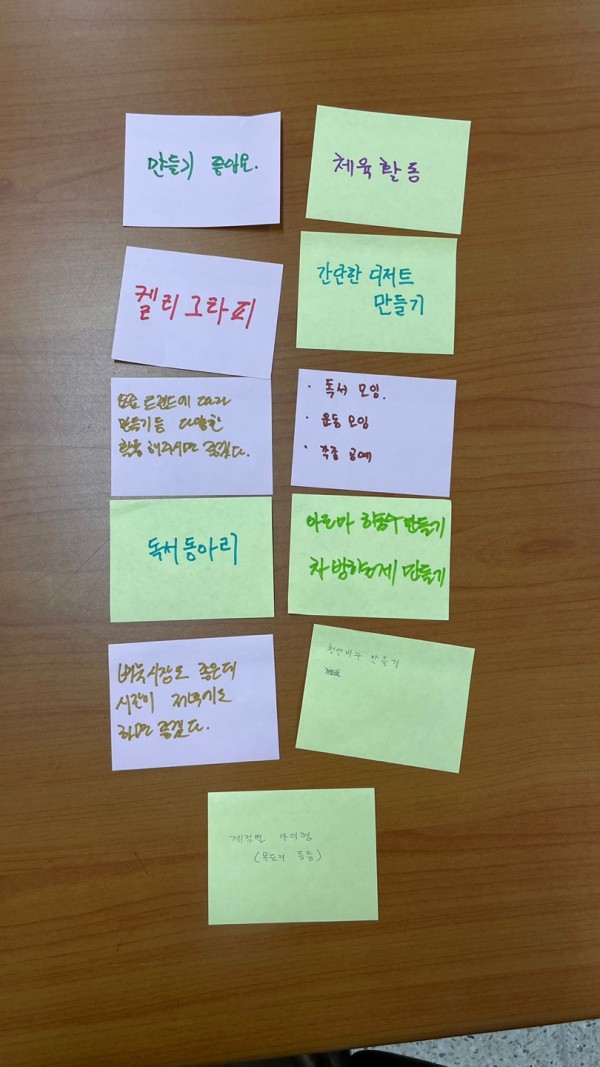 만들기 좋아요.
체육 활동
켈리그라피
간단한 디저트
만들기
요즘 트렌드에 따라
만들기 등 다양한
활동 해주시면 좋겠다.
· 독서 모임.
· 운동 모임
· 각종 공예
독서동아리
아로마 향수 만들기
차 방향제 만들기
시간도 좋은데
시간이
하면 좋겠다.
천연비누 만들기
계절별
(목도리 등등)